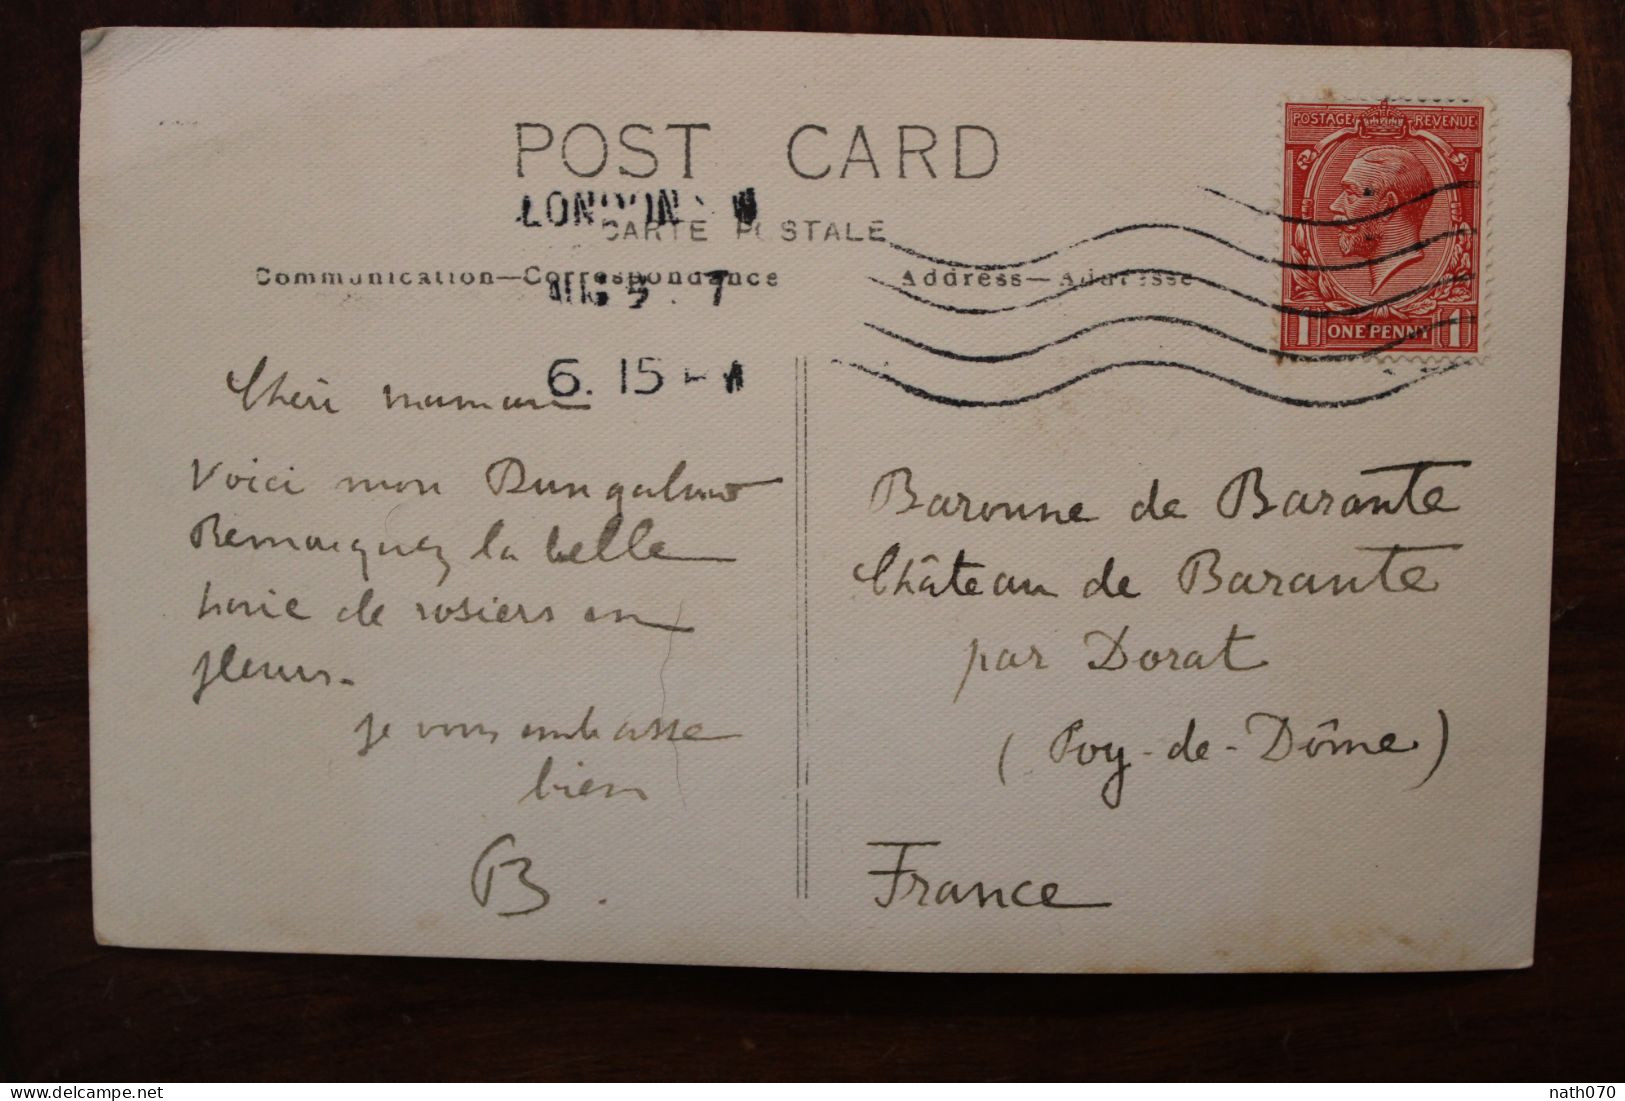 POST CARD
LONDON W
CARTE POSTALE
Communication—Correspondance
Address—Addresse
AUG 5 7
6. 15
POSTAGE REVENUE
1 ONE PENNY 1
Chèri maman
Voici mon Bungalow
Remarquez la belle
haie de rosiers en
fleurs.
je vous embrasse
bien
B.
Baronne de Barante
Château de Barante
par Dorat
(Puy-de-Dôme)
France
Delcampe.net
nath070